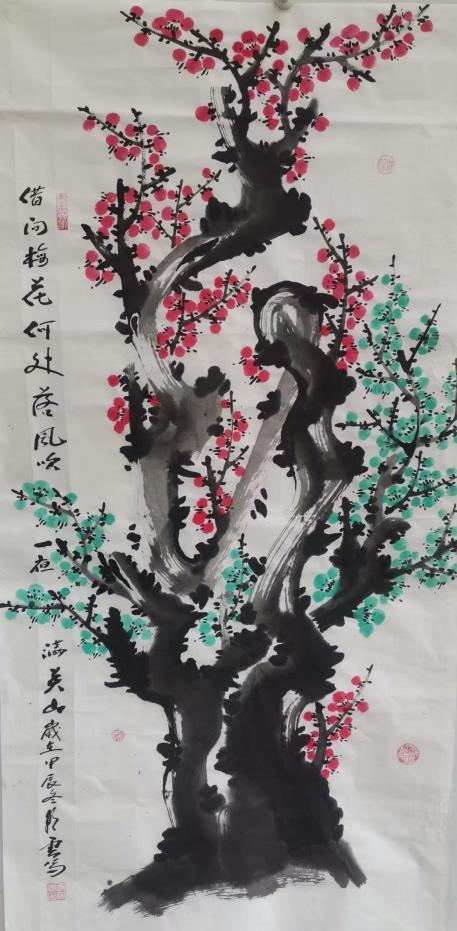 借问梅花何处落风吹一夜满关山歲在甲辰冬